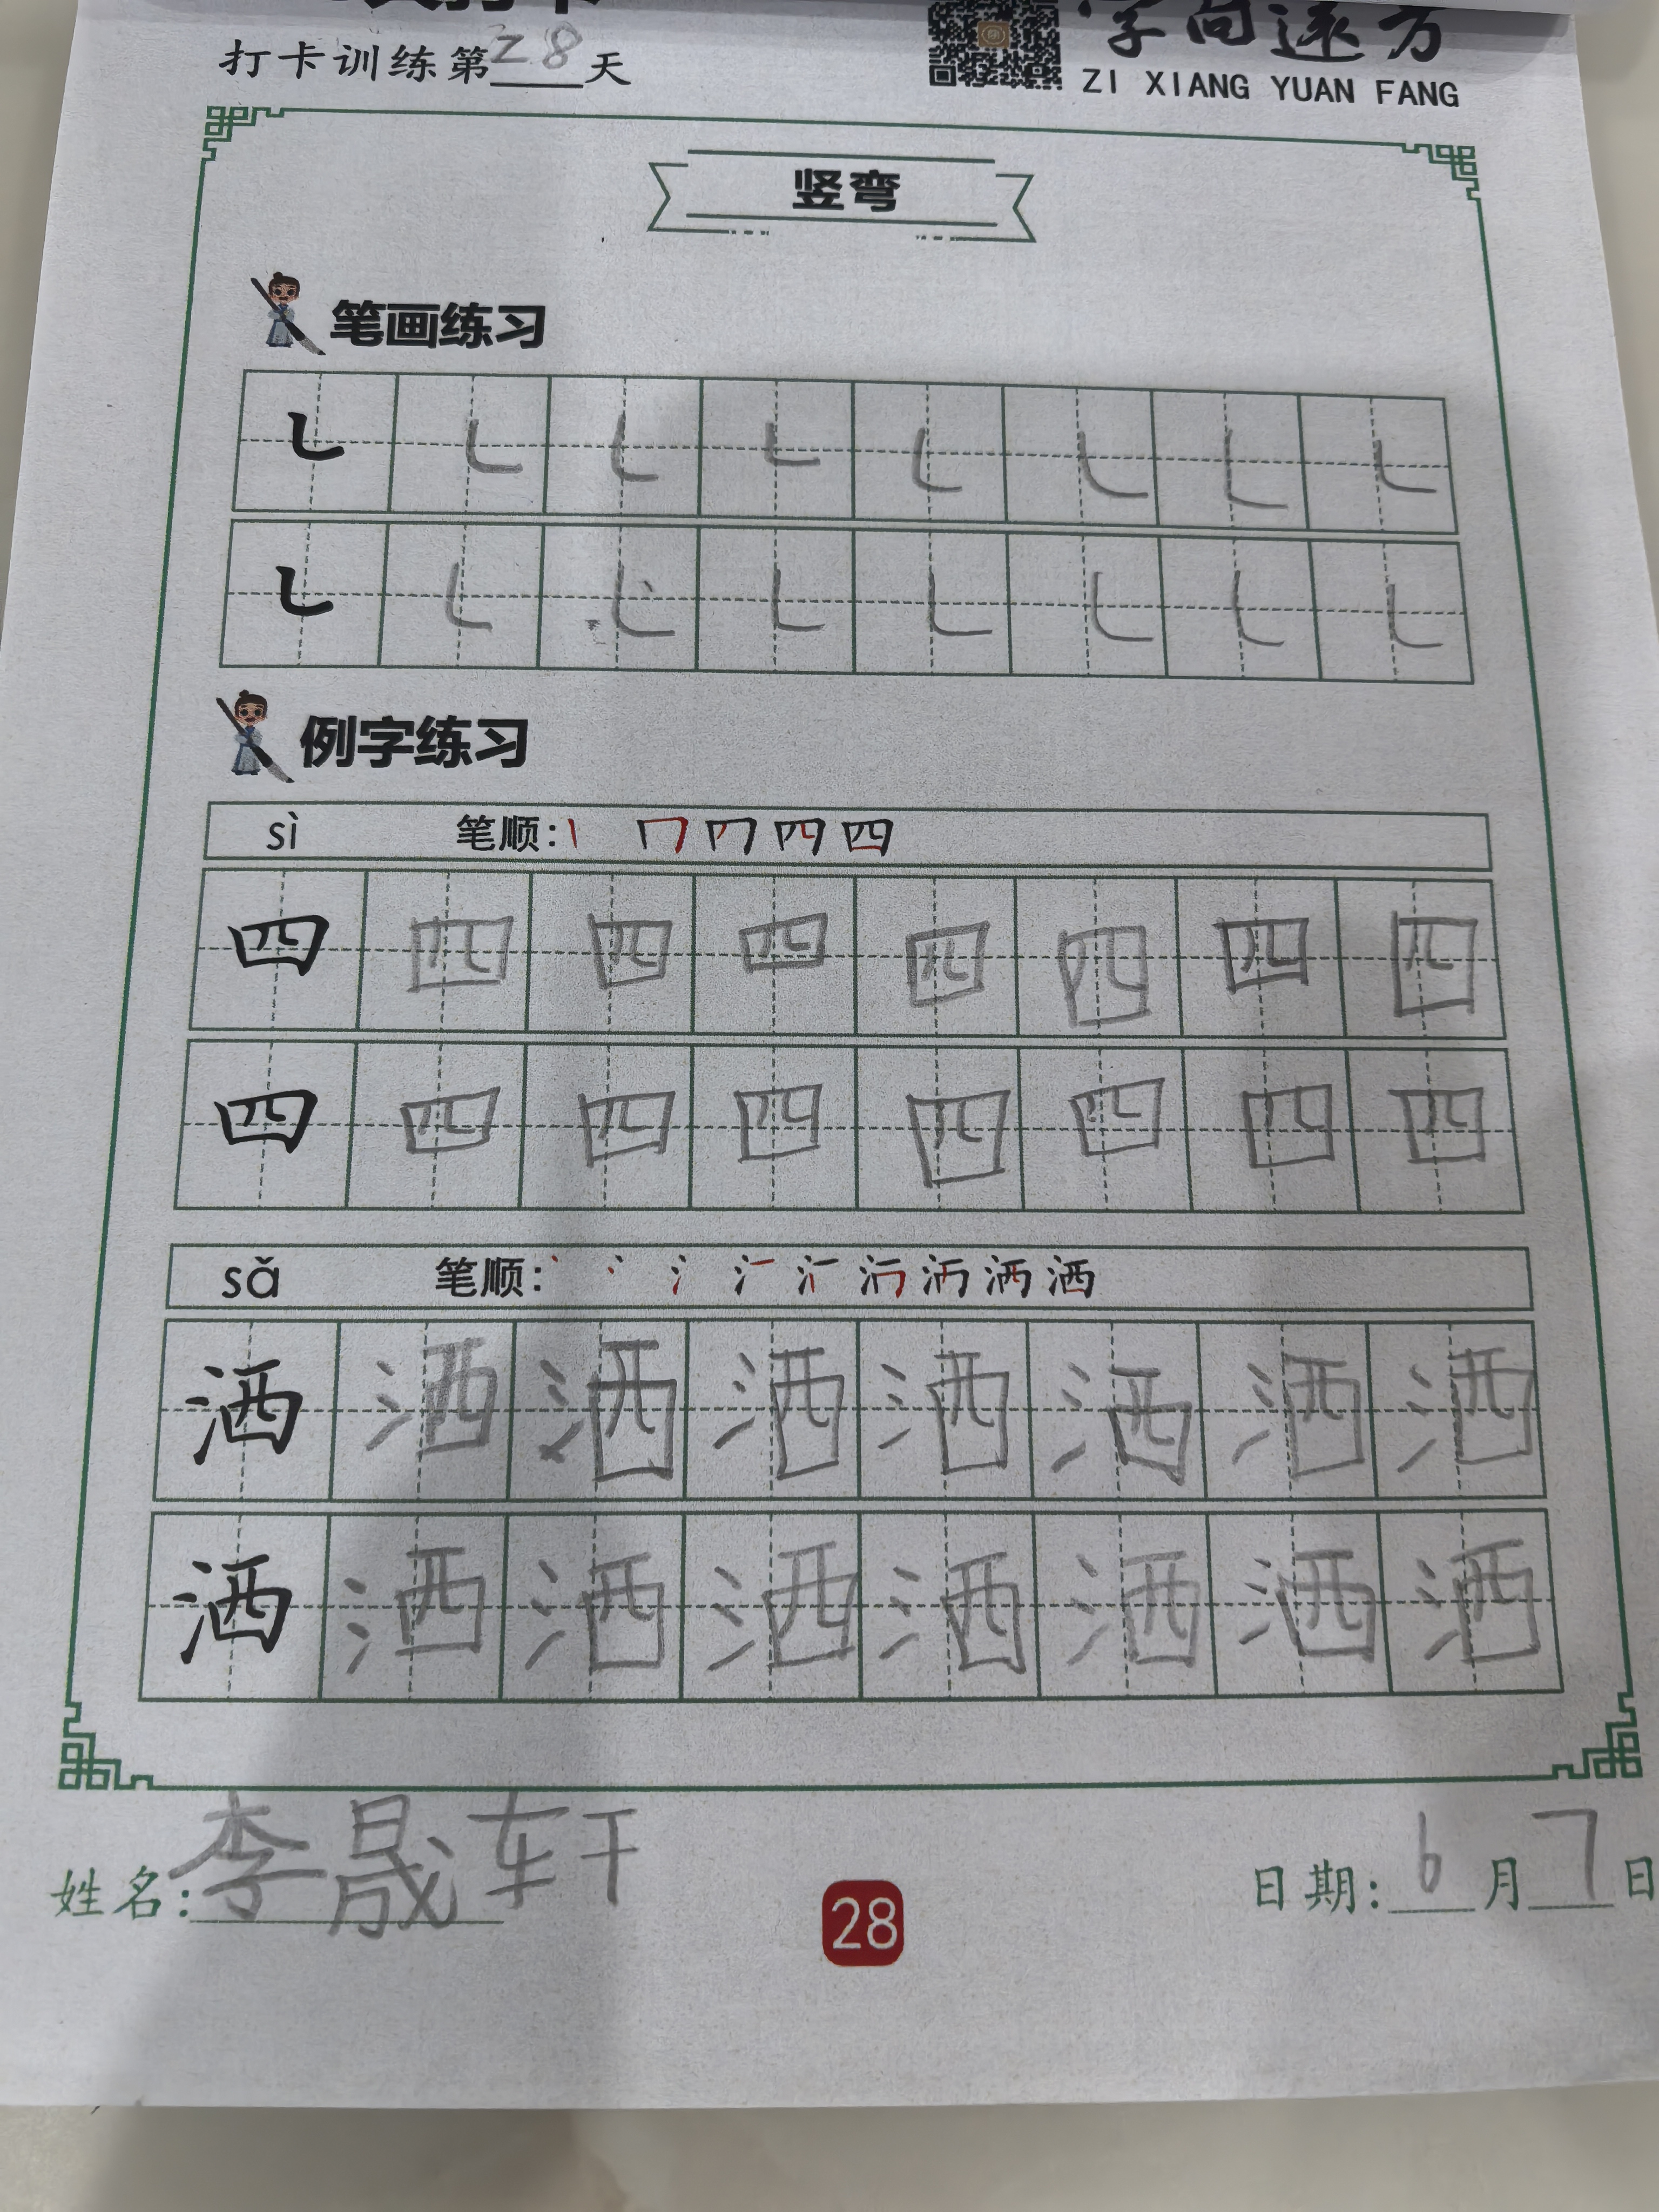 打卡训练第28天
字向远方
ZI XIANG YUAN FANG
竖弯
笔画练习
例字练习
sì 笔顺:
四四四四四四四四
四四四四四四四四
sǎ 笔顺: 洒
洒洒洒洒洒洒洒洒
洒洒洒洒洒洒洒洒
姓名: 李晟轩
28
日期: 6月7日